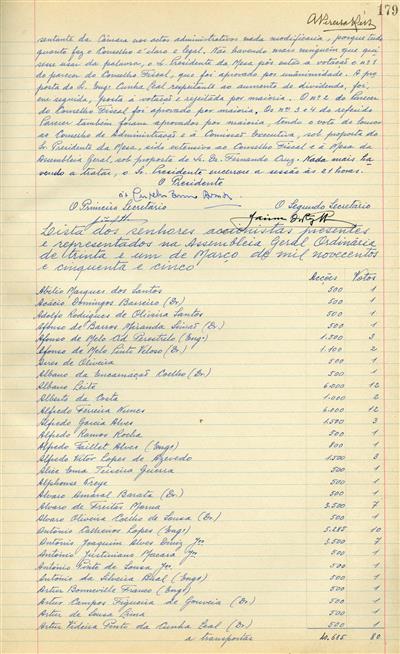 179
sentante da Câmara nos actos administrativos nada modificaria, porque tudo
quanto fez o Conselho é claro e legal. Não havendo mais ninguém que qui
sesse usar da palavra, o Sr. Presidente da Mesa pôs então à votação o nº 1
do parecer do Conselho Fiscal, que foi aprovado por unanimidade. A pro
posta do Sr. Engº Cunha Leal respeitante ao aumento de dividendo, foi,
em seguida, posta à votação e rejeitada por maioria. O nº 2 do Parecer
do Conselho Fiscal foi aprovado por maioria. Os nºs 3 e 4 do referido
Parecer também foram aprovados por maioria, tendo o voto de louvor
ao Conselho de Administração e à Comissão Executiva, sob proposta do
Sr. Presidente da Mesa, sido extensivo ao Conselho Fiscal e à Mesa da
Assembleia Geral, sob proposta do Sr. Dr. Fernando Cruz. Nada mais ha
vendo a tratar, o Sr. Presidente encerrou a sessão às 21 horas.
O Presidente
O Primeiro Secretário O Segundo Secretário
Lista dos senhores accionistas presentes
e representados na Assembleia Geral Ordinária
de trinta e um de Março de mil novecentos
e cinquenta e cinco
Acções Votos
Abílio Marques dos Santos 500 1
Acácio Domingos Barreiro (Dr.) 500 1
Adolfo Rodrigues de Oliveira Santos 500 1
Afonso de Barros Miranda (Dr.) 500 1
Afonso de Melo Cid Perestrelo (Engº) 1.500 3
Afonso de Melo Pinto Veloso (Dr.) 1.100 2
Aires de Oliveira 500 1
Albano da Encarnação Coelho (Dr.) 500 1
Albano Leite 6.000 12
Alberto da Costa 1.000 2
Alfredo Ferreira Nunes 6.000 12
Alfredo Garcia Alves 1.500 3
Alfredo Ramos Rocha 500 1
Alfredo Taillet Alves (Engº) 800 1
Alfredo Vítor Lopes de Azevedo 1.500 3
Alice Ema Teixeira Guerra 500 1
Alphonse Freye 500 1
Alvaro Amaral Barata (Dr.) 500 1
Alvaro de Freitas Morna 3.500 7
Alvaro Oliveira Coelho de Sousa (Dr.) 500 1
António Calheiros Lopes (Engº) 5.285 10
António Joaquim Alves Diniz Jor 3.500 7
António Justiniano Jor 500 1
António Pinto de Sousa Jor. 500 1
António da Silveira (Engº) 500 1
Artur Bonneville Franco (Engº) 500 1
Artur Campos Figueira de Gouveia (Dr.) 500 1
Artur de Sousa Lima 500 1
Artur Videira Pinto da Cunha Leal (Dr.) 500 1
a transportar 40.685 80